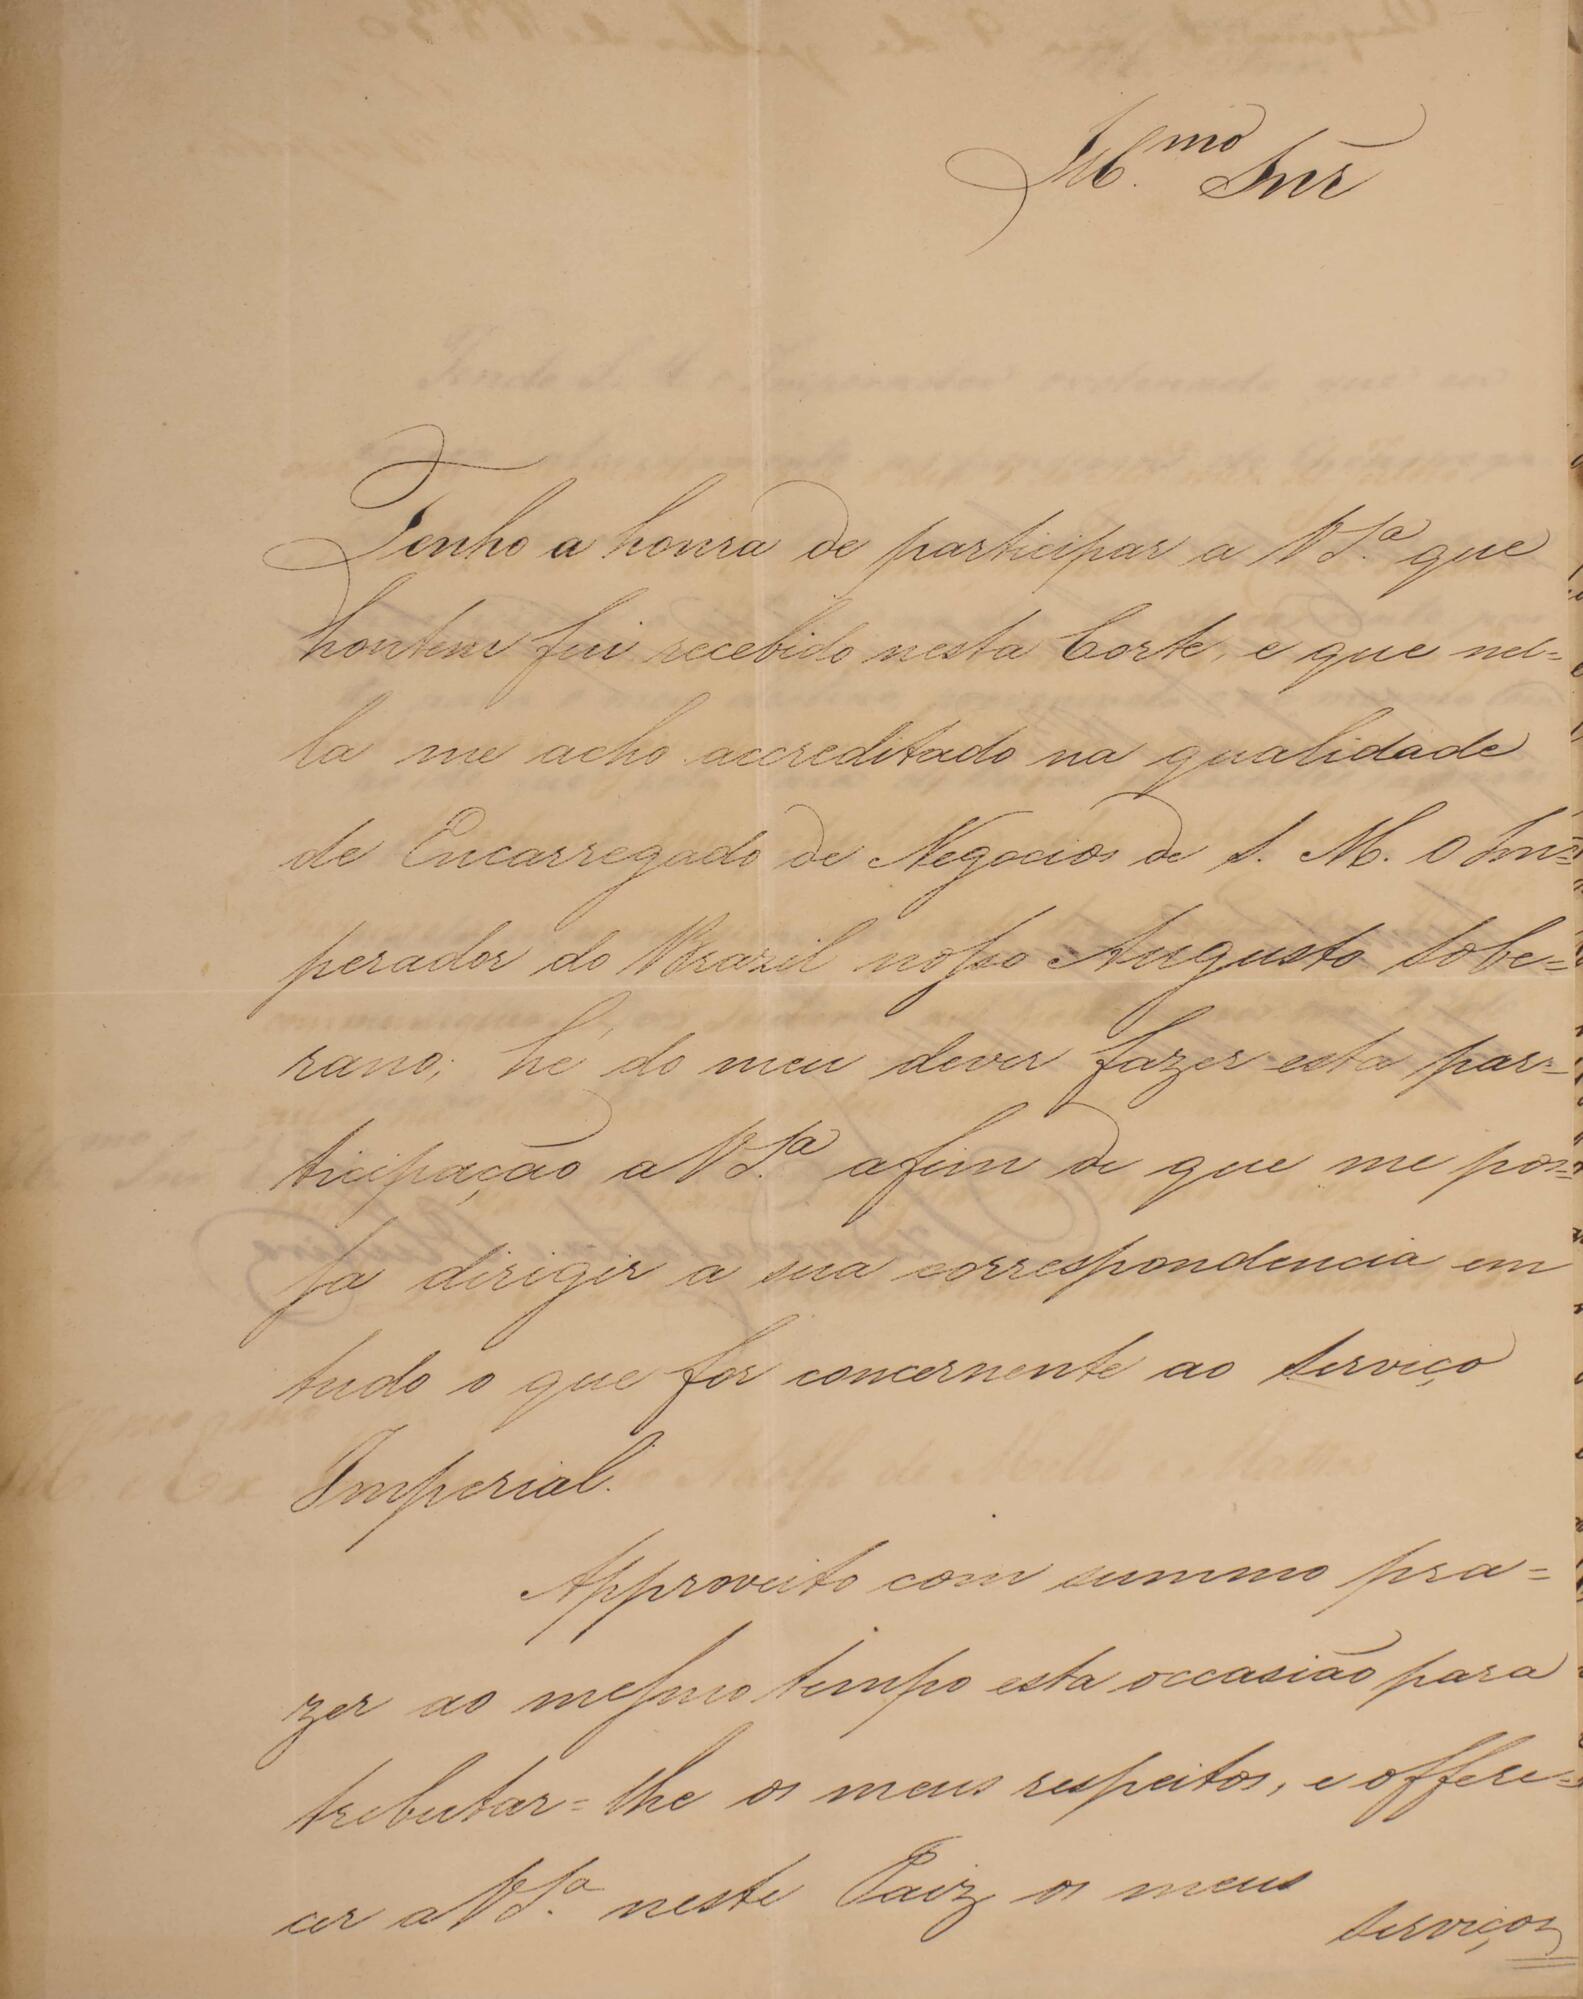 Ill.mo Snr
Tenho a honra de participar a V S.a que
hontem fui recebido nesta Corte, e que nel=
la me acho accreditado na qualidade
de Encarregado de Negocios de S. M. O Im=
perador do Brazil nosso Augusto Sobe=
rano; he do meu dever fazer esta par=
ticipação a V S.a afim de que me pos=
sa dirigir a sua correspondencia em
tudo o que for concernente ao Serviço
Imperial.
Approveito com summo pra=
zer ao mesmo tempo esta occasião para
trebutar=lhe os meus respeitos, e offere=
cer a V S.a neste Paiz os meus
serviços